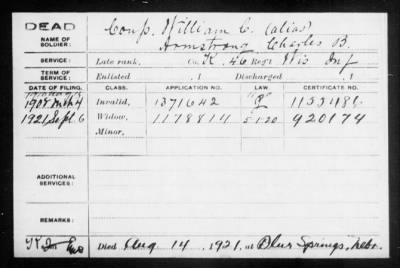 DEAD
Coup. William C. (alias)
NAME OF SOLDIER:
Armstrong, Charles B.
SERVICE: Late rank, Co. K. 46 Reg't Wis Inf
TERM OF SERVICE: Enlisted , 1 Discharged , 1
DATE OF FILING. CLASS. APPLICATION NO. LAW. CERTIFICATE NO.
1908 Mch 4 Invalid, 1371642 1153486
1921 Sept. 6 Widow, 1178814 5120 920174
Minor,
ADDITIONAL SERVICES:
REMARKS:
Died Aug 14, 1921, at Blue Springs, Nebr.